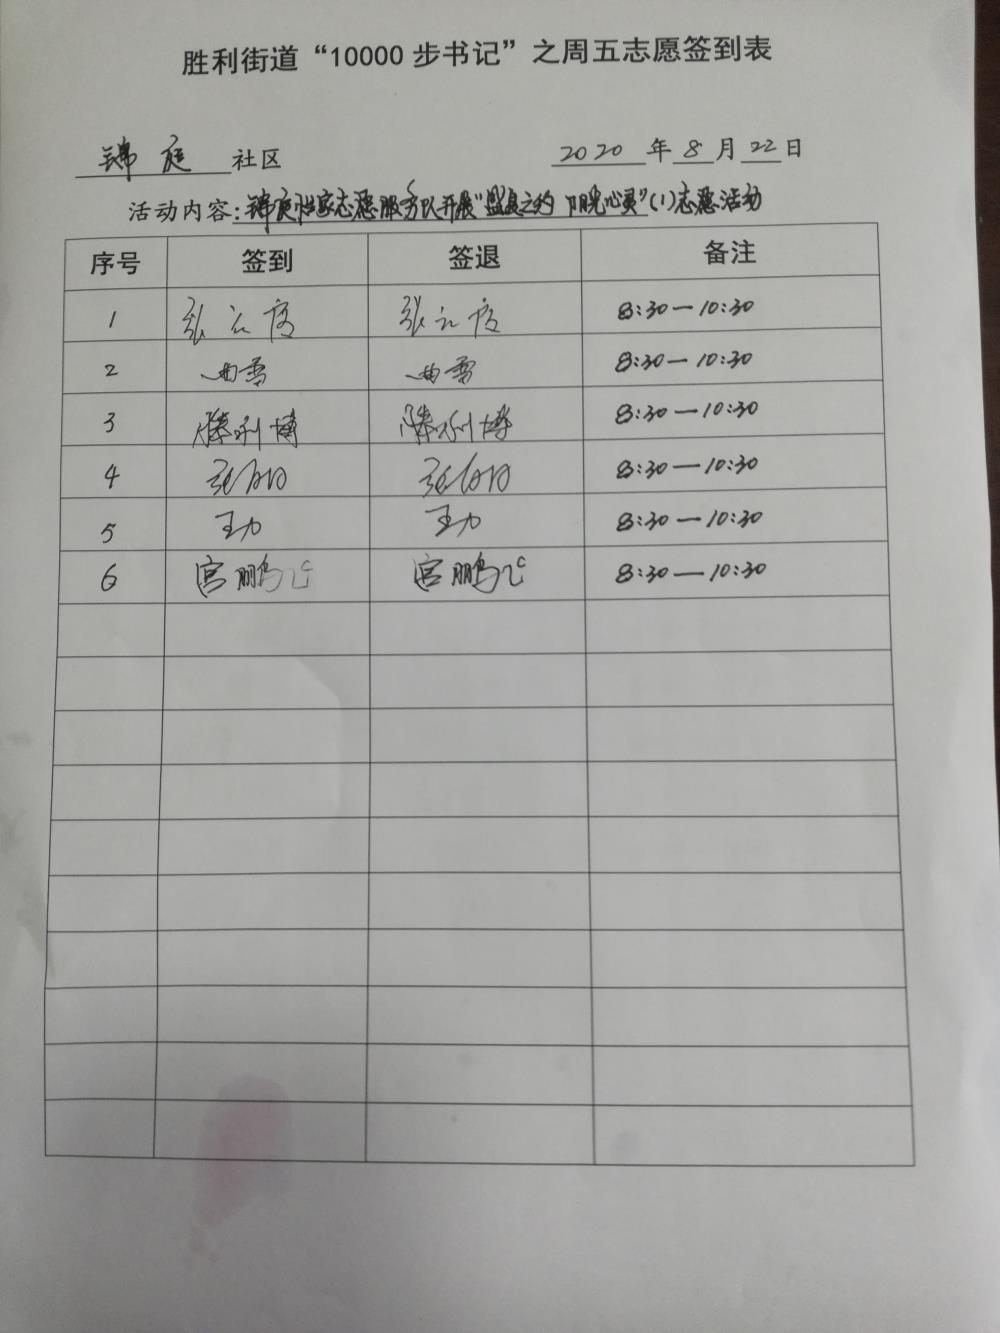 胜利街道“10000 步书记”之周五志愿签到表
锦庭 社区 2020 年 8 月 22 日
活动内容：锦庭 家志愿服务队开展“盛夏之约 阳光心灵”（1）志愿活动
序号 签到 签退 备注
1 张 张 8:30—10:30
2 曲雪 曲雪 8:30—10:30
3 滕利博 滕利博 8:30—10:30
4 张 张 8:30—10:30
5 王力 王力 8:30—10:30
6 宫鹏飞 宫鹏飞 8:30—10:30